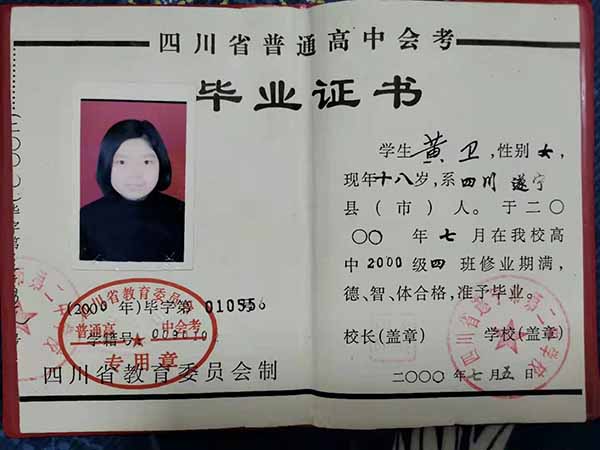 四川省普通高中会考
毕业证书
学生 黄卫,性别女,
现年十八岁,系四川遂宁
县(市)人。于二〇
〇〇 年七月在我校高
中2000级四班修业期满,
德、智、体合格,准予毕业。
校长(盖章) 学校(盖章)
二〇〇〇年七月五日
四川省教育委员会
普通高 中会考
专用章
(2000年)毕字第
学籍号
四川省教育委员会制